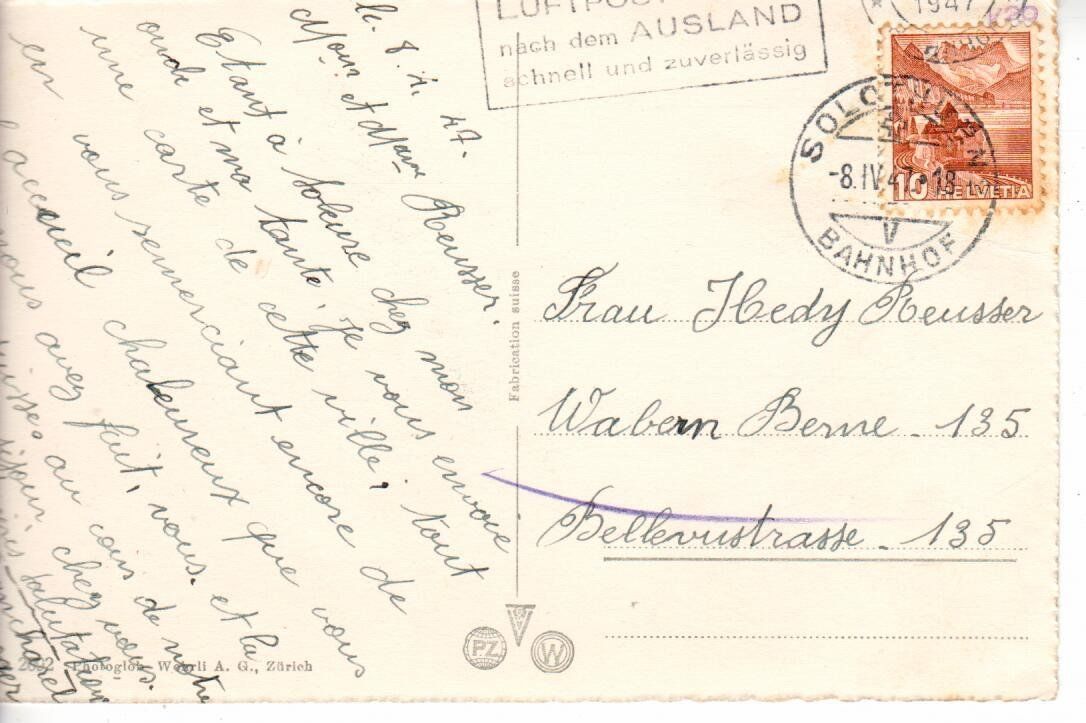 le. 8. 4. 47.
Mon et Mame Reusser.
Etant à Soleure chez mon
oncle et ma tante, je vous envoie
une carte de cette ville, tout
en vous remerciant encore de
l'accueil chaleureux que vous
nous avez fait, vous. et la
Suisse. au cours de notre
séjour chez vous.
salutation
LUFTPOST
nach dem AUSLAND
schnell und zuverlässig
1947
SOLOTHURN
-8.IV.47.-18
V
BAHNHOF
10 HELVETIA
Fabrication suisse
Frau Hedy Reusser
Wabern Berne - 135
Bellevustrasse - 135
P.Z.
W
Photoglob-Wehrli A. G., Zürich